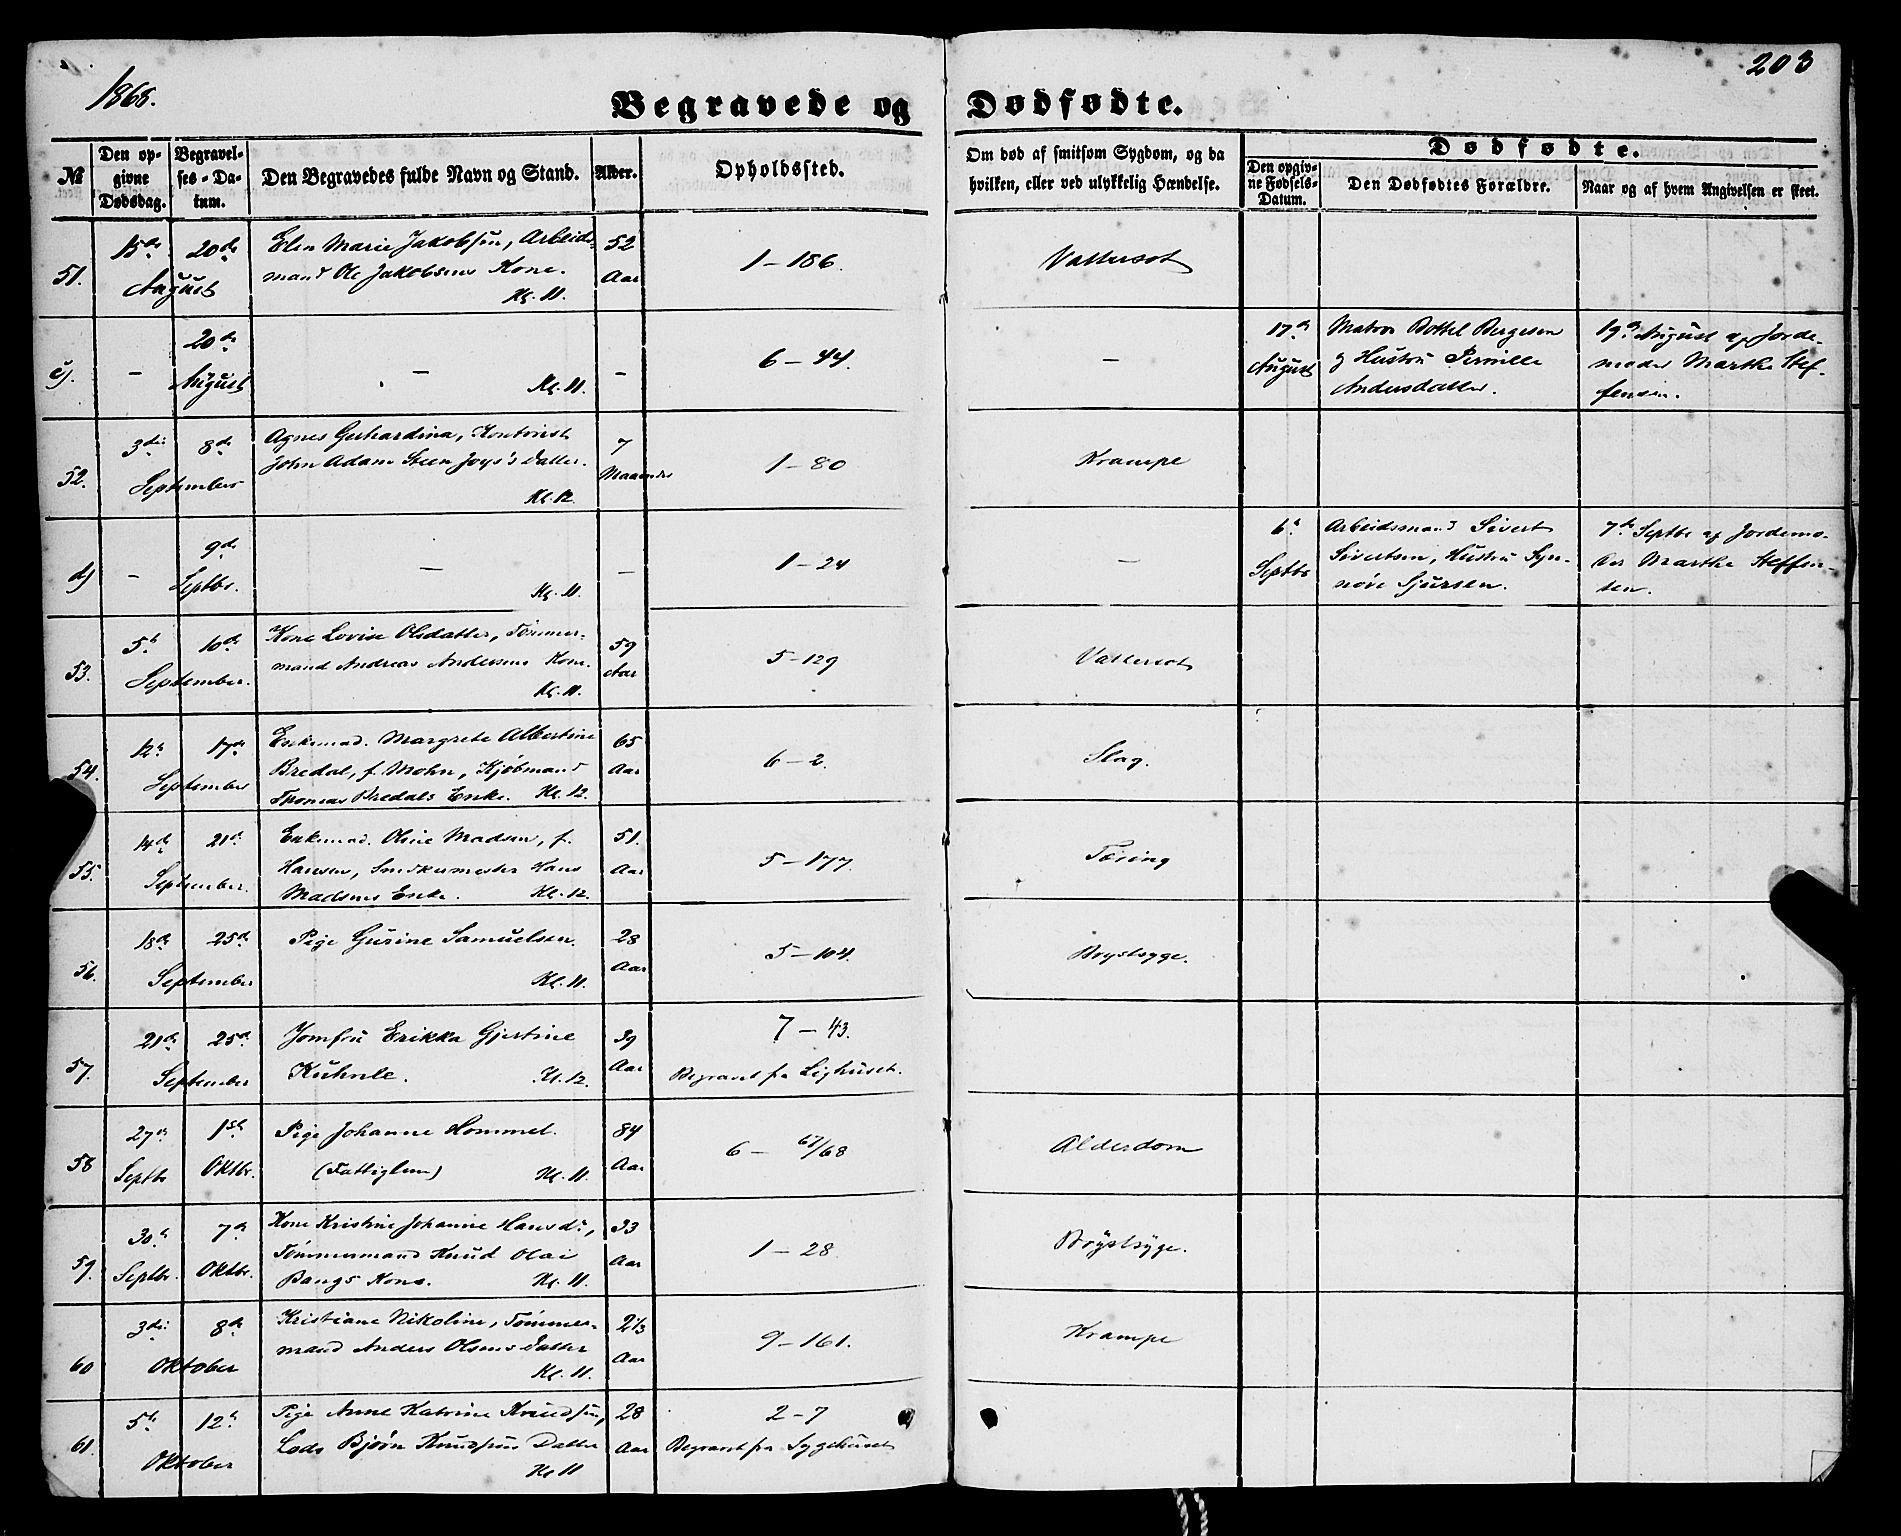 1868.
203
Begravede og Dødfødte.
№
Den op-
givne
Dødsdag.
Begravel-
ses-Da-
tum.
Den Begravedes fulde Navn og Stand.
Alder.
Opholdssted.
Om død af smitsom Sygdom, og da
hvilken, eller ved ulykkelig Hændelse.
Dødfødte.
Den opgiv-
ne Fødsels-
Datum.
Den Dødfødtes Forældre.
Naar og af hvem Angivelsen er skeet.
51.
15de 20de
August
Elen Marie Jakobsen, Arbeids-
mand Ole Jakobsens Kone.
Kl. 11.
52
Aar
1-186.
Vattersot
c).
-
20de
August
-
Kl. 11.
-
6-44.
-
17de
August
Matros Bottel Bergesen
og Hustru Pernille
Andersdatter.
19de August af Jorde-
moder Marthe Stef-
fensen.
52.
3die 8de
September
Agnes Gerhardina, Kontorist
John Adam Steen Joys's Datter.
Kl. 12.
7
Maaneder
1-80
Krampe
d)
-
9de
Septbr.
-
Kl. 11.
-
1-24
-
6te
Septbr
Arbeidsmand Sivert
Sivertsen, Hustru Syn-
nøve Sjursen.
7de Septbr af Jordemo-
der Marthe Steffen-
sen.
53.
5te 10de
September.
Kone Lovise Olsdatter, Tømmer-
mand Andreas Andersens Kone.
Kl. 11.
59
Aar
5-129
Vattersot
54.
12te 17de
September
Enkemad. Margrete Albertine
Bredal, f. Mohn, Kjøbmand
Thomas Bredals Enke. Kl. 12.
65
Aar
6-2.
Slag.
55.
14de 21de
September.
Enkemad. Oline Madsen, f.
Hansen, Snedkermester Hans
Madsens Enke. Kl. 12.
51.
Aar
5-177.
Tæring
56.
18de 25de
September
Pige Gurine Samuelsen.
Kl. 11.
28
Aar
5-104.
Brystsyge.
57.
21de 25de
September
Jomfru Erikka Gjertine
Kuhnle. Kl. 12.
39
Aar
7-43.
Begravet fra Lighuset.
58
27de
Septbr
1ste
Oktbr.
Pige Johanne Hommel.
(Fattiglem) Kl. 11.
84
Aar
6-67/68
Alderdom
59.
30te
Septbr.
7de
Oktbr.
Kone Kristine Johanne Hansdr,
Tømmermand Knud Olai
Bangs Kone. Kl. 11.
33
Aar
1-28
Brystsyge.
60
3die 8de
Oktober
Kristiane Nikoline, Tømmer-
mand Anders Olsens Datter
Kl. 11.
Aar
9-161.
Krampe
61.
5te 12te
Oktober
Pige Anne Katrine Knudsen,
Lods Bjørn Knudsens Datter
Kl 11
28
Aar
2-7
Begravet fra Sygehuset